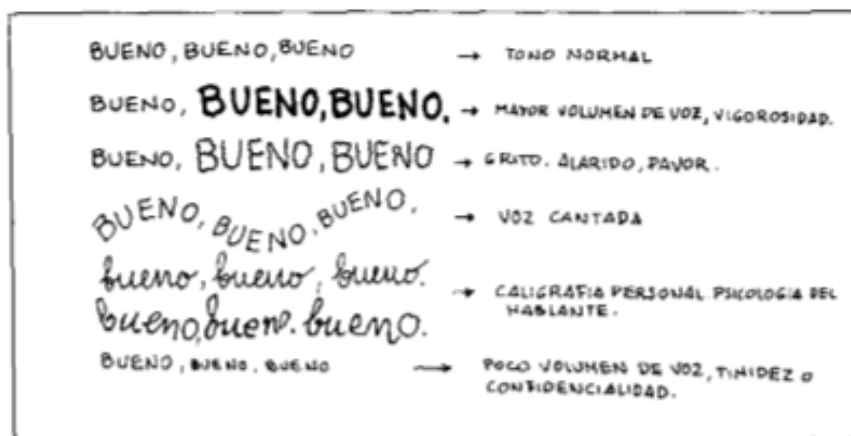 BUENO, BUENO, BUENO → TONO NORMAL
BUENO, BUENO, BUENO. → MAYOR VOLUMEN DE VOZ, VIGOROSIDAD.
BUENO, BUENO, BUENO → GRITO. ALARIDO, PAVOR.
BUENO, BUENO, BUENO, → VOZ CANTADA
bueno, bueno, bueno. → CALIGRAFIA PERSONAL PSICOLOGIA DEL
bueno, bueno. bueno. HABLANTE.
BUENO, BUENO, BUENO → POCO VOLUMEN DE VOZ, TIMIDEZ O
CONFIDENCIALIDAD.